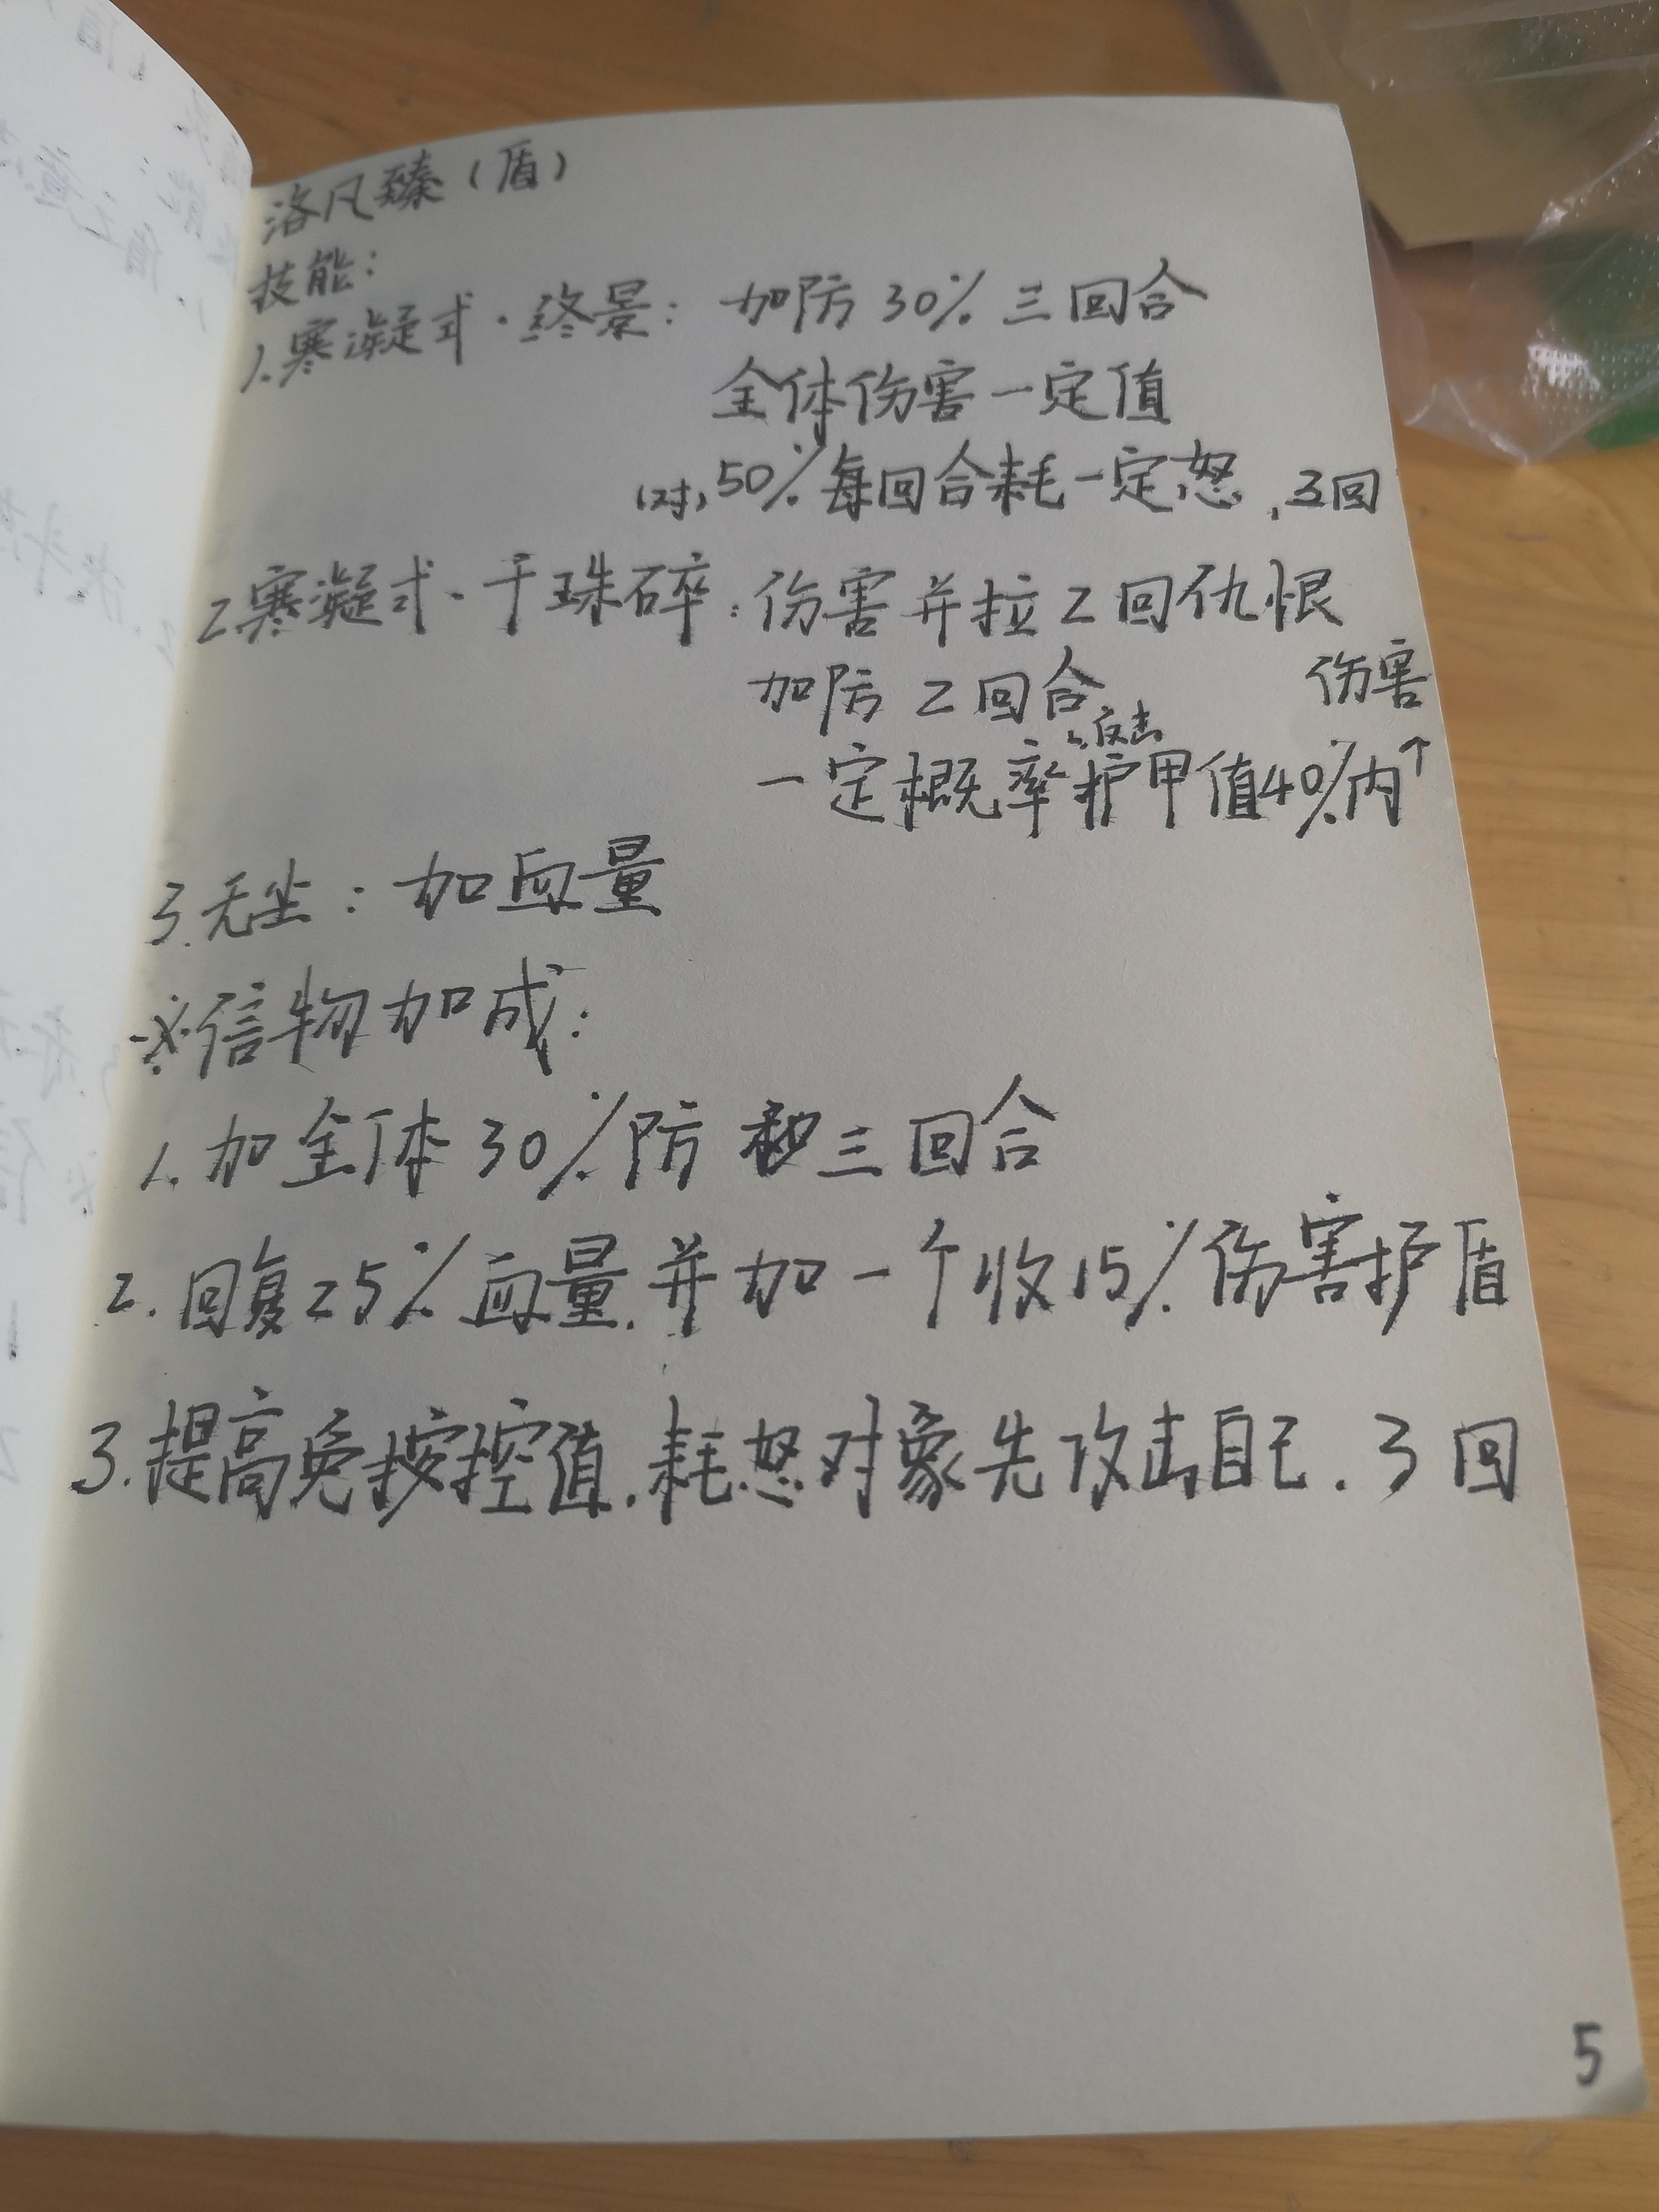 洛凡臻（盾）
技能：
1.寒凝式·终景：加防30%三回合
全体伤害一定值
(对)50%每回合耗一定怒，3回
2.寒凝式·千珠碎：伤害并拉2回仇恨
加防2回合
伤害
反击
一定概率护甲值40%内↑
3.无尘：加血量
※信物加成：
1.加全体30%防 三回合
2.回复25%血量.并加一个收15%伤害护盾
3.提高免控值.耗怒对象先攻击自己.3回
5